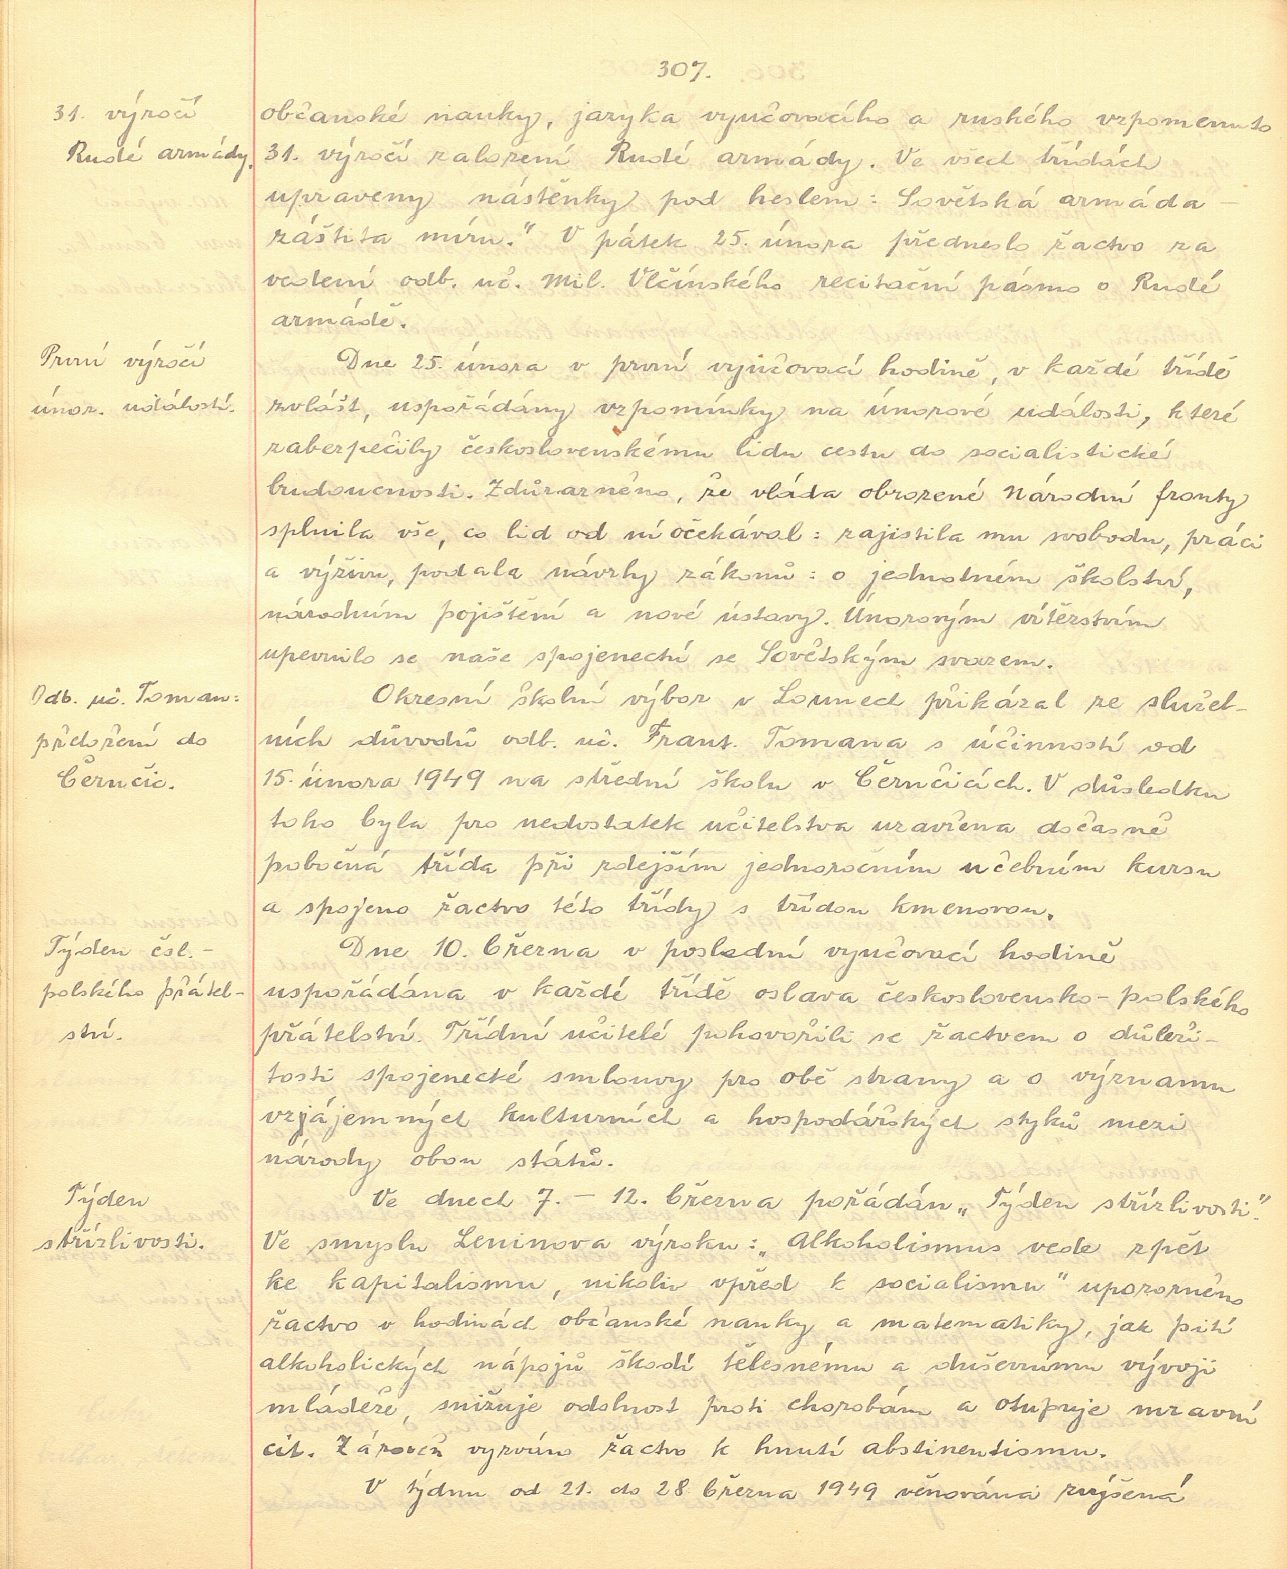 307.
31. výročí
Rudé armády.
občanské nauky, jazyka vyučovacího a ruského vzpomenuto
31. výročí založení Rudé armády. Ve všech třídách
upraveny nástěnky pod heslem: Sovětská armáda –
záštita míru." V pátek 25. února předneslo žactvo za
vedení odb. uč. Mil. Vlčinského recitační pásmo o Rudé
armádě.
První výročí
únor. událostí.
Dne 25. února v první vyučovací hodině, v každé třídě
zvlášť, uspořádány vzpomínky na únorové události, které
zabezpečily československému lidu cestu do socialistické
budoucnosti. Zdůrazněno, že vláda obrozené Národní fronty
splnila vše, co lid od ní očekával: zajistila mu svobodu, práci
a výživu, podala návrhy zákonů: o jednotném školství,
národním pojištění a nové ústavy. Únorovým vítězstvím
upevnilo se naše spojenectví se Sovětským svazem.
Odb. uč. Toman:
přeložení do
Černčic.
Okresní školní výbor v Lounech přikázal ze služeb-
ních důvodů odb. uč. Frant. Tomana s účinností od
15. února 1949 na střední školu v Černčicích. V důsledku
toho byla pro nedostatek učitelstva uzavřena dočasně
pobočná třída při zdejším jednoročním učebním kursu
a spojeno žactvo této třídy s třídou kmenovou.
Týden čsl.-
polského přátel-
ství.
Dne 10. března v poslední vyučovací hodině
uspořádána v každé třídě oslava československo-polského
přátelství. Třídní učitelé pohovořili se žactvem o důleži-
tosti spojenecké smlouvy pro obě strany a o významu
vzjájemných kulturních a hospodářských styků mezi
národy obou států.
Týden
střízlivosti.
Ve dnech 7. – 12. března pořádán „Týden střízlivosti".
Ve smyslu Leninova výroku: „Alkoholismus vede zpět
ke kapitalismu, nikoliv vpřed k socialismu" upozorněno
žactvo v hodinách občanské nauky a matematiky, jak pití
alkoholických nápojů škodí tělesnému a duševnímu vývoji
mládeže, snižuje odolnost proti chorobám a otupuje mravní
cit. Zároveň vyzváno žactvo k hnutí abstinentismu.
V týdnu od 21. do 28. března 1949 věnována zvýšená